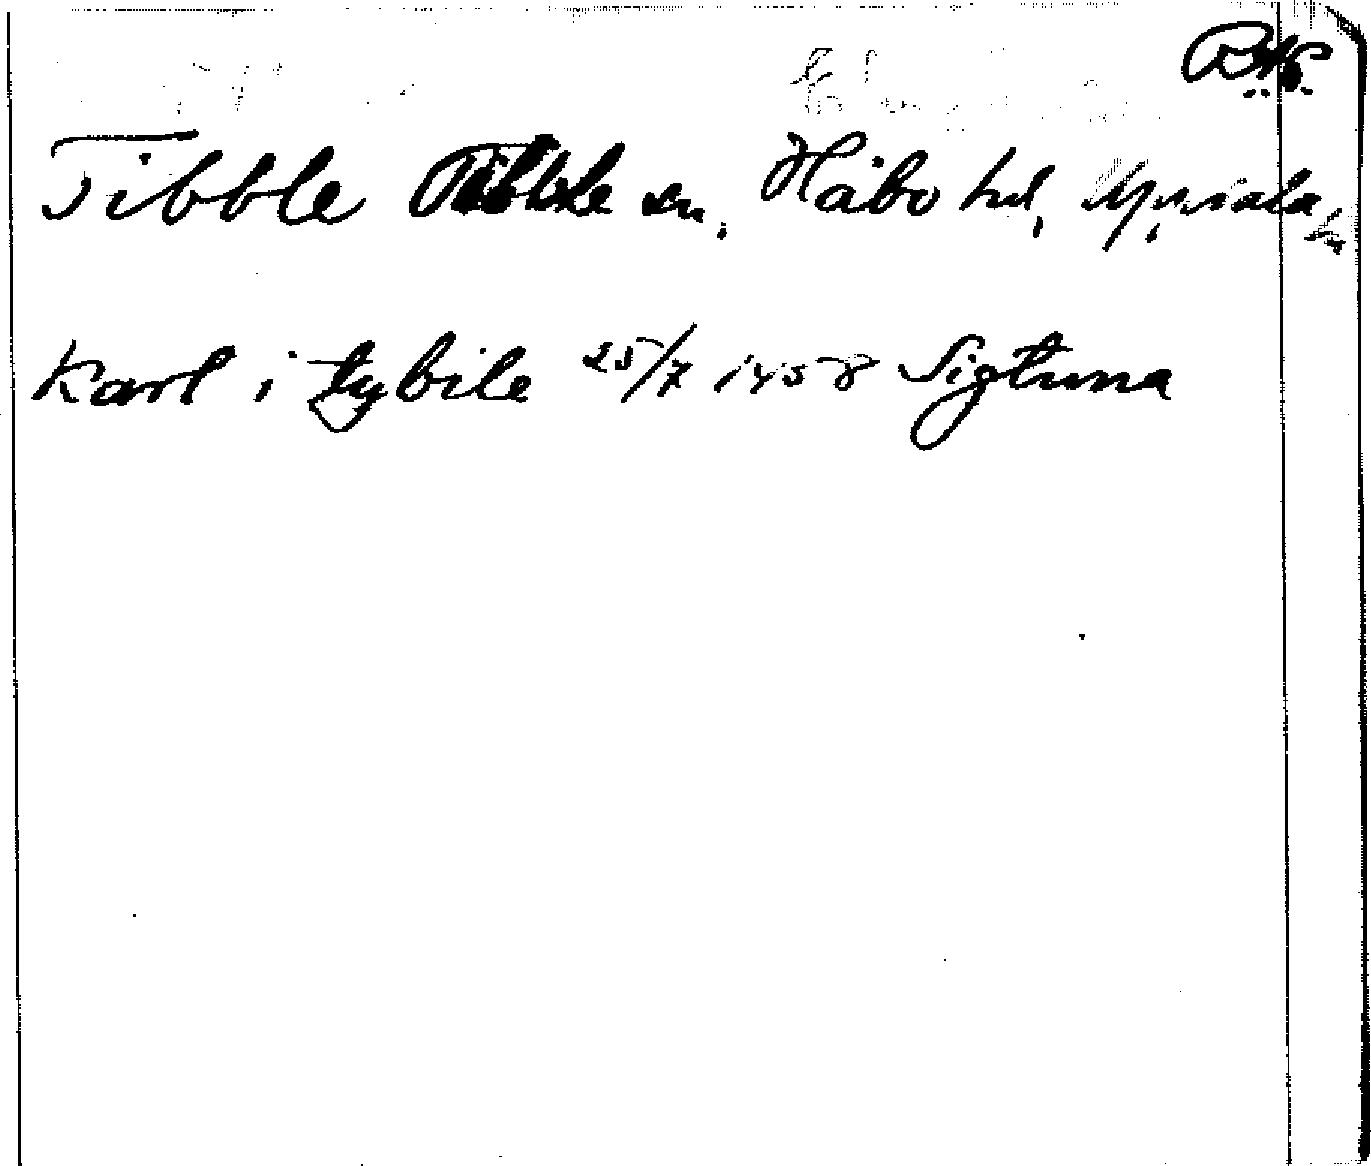 Tibble Tibble sn, Håbo hd, Uppsala län
Karl i tybile 25/7 1458 Sigtuna